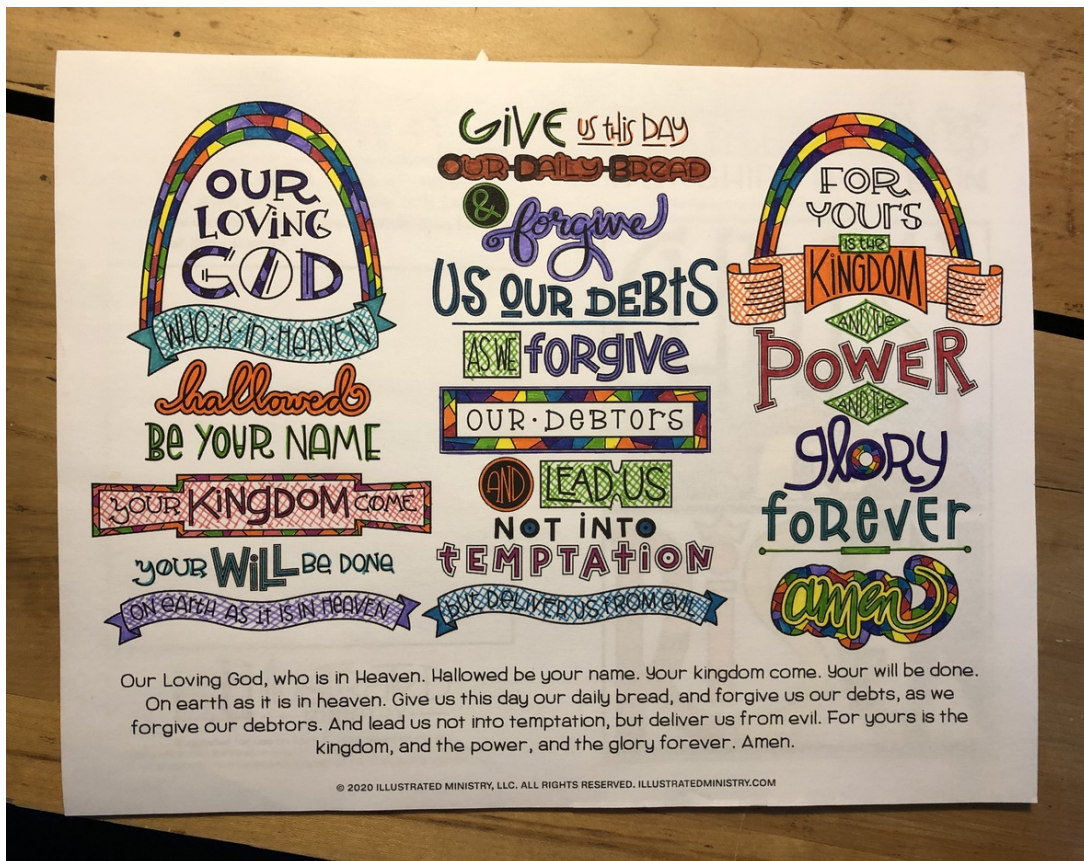 OUR
LOVING
GOD
WHO·IS·IN·HEAVEN
hallowed
BE YOUR NAME
YOUR KINGDOM COME
YOUR WILL BE DONE
ON EARTH AS IT IS IN HEAVEN
GIVE US THIS DAY
OUR·DAILY·BREAD
& forgive
US OUR DEBTS
AS WE FORGIVE
OUR·DEBTORS
AND LEAD US
NOT INTO
TEMPTATION
BUT DELIVER US FROM EVIL
FOR
YOURS
IS THE
KINGDOM
AND THE
POWER
AND THE
GLORY
FOREVER
amen
Our Loving God, who is in Heaven. Hallowed be your name. Your kingdom come. Your will be done.
On earth as it is in heaven. Give us this day our daily bread, and forgive us our debts, as we
forgive our debtors. And lead us not into temptation, but deliver us from evil. For yours is the
kingdom, and the power, and the glory forever. Amen.
© 2020 ILLUSTRATED MINISTRY, LLC. ALL RIGHTS RESERVED. ILLUSTRATEDMINISTRY.COM